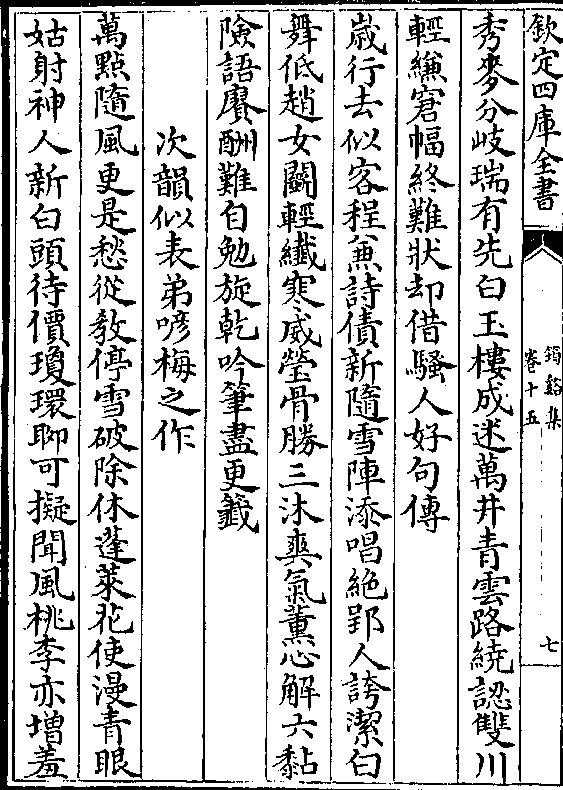 欽定四庫全書
鐲谿集
卷十五
七
秀麥分岐瑞有先白玉樓成迷萬井青雲路繞認雙川
輕縑窘幅終難狀却借騷人好句傳
歲行去似客程兼詩債新隨雪陣添唱絶郢人誇潔白
舞低趙女鬭輕纖寒威瑩骨勝三沐爽氣薰心解六黏
險語賡酬難自勉旋乾吟筆盡更籤
次韻似表弟喭梅之作
萬點隨風更是愁從教停雪破除休蓬萊花使漫青眼
姑射神人新白頭待價瓊環聊可擬聞風桃李亦增羞